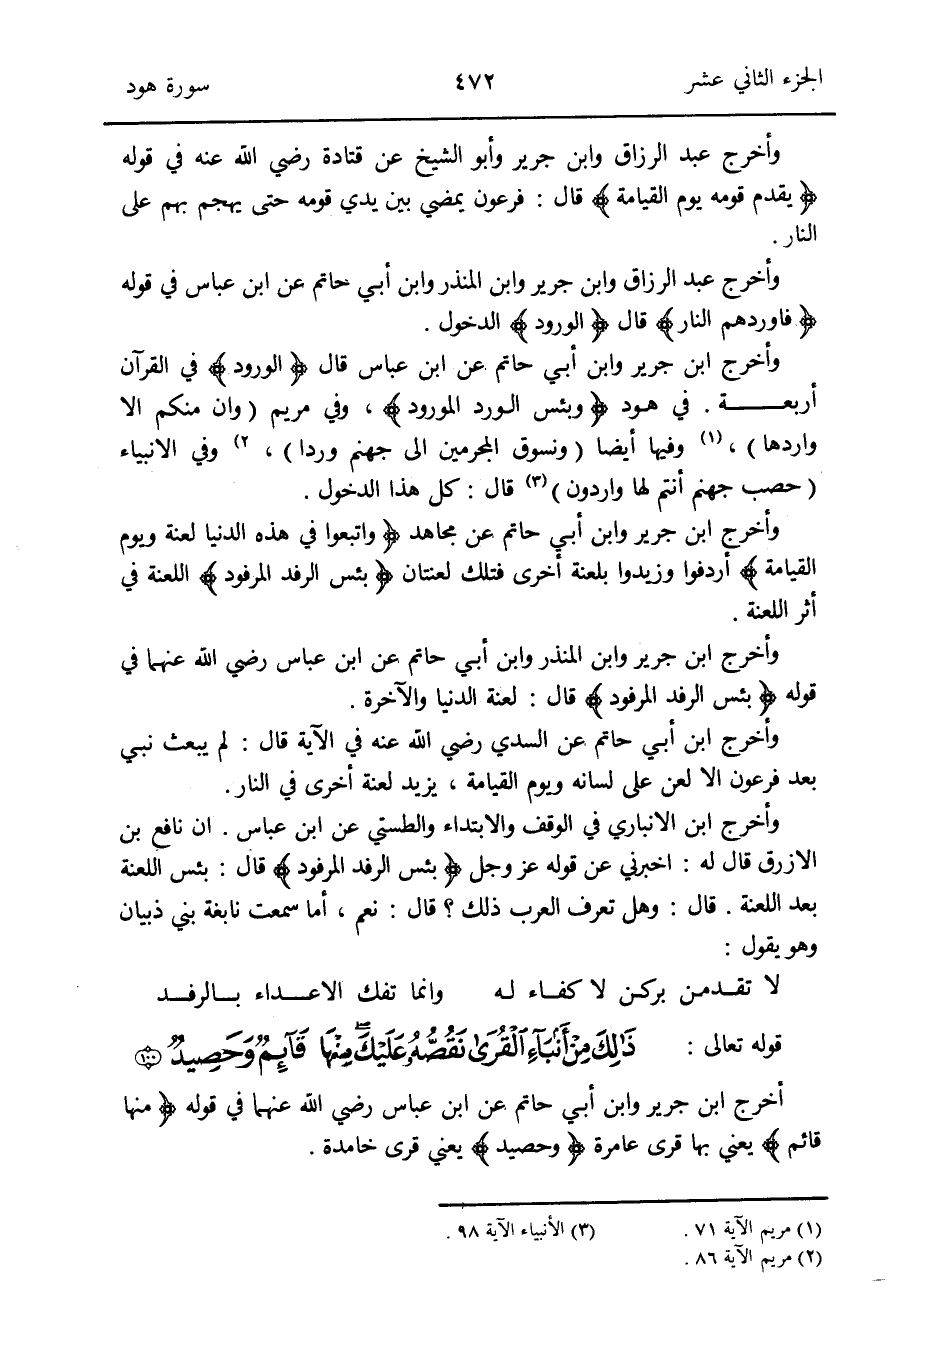 الجزء الثاني عشر ٤٧٢ سورة هود
وأخرج عبد الرزاق وابن جرير وأبو الشيخ عن قتادة رضي الله عنه في قوله
﴿ يقدم قومه يوم القيامة ﴾ قال : فرعون يمضي بين يدي قومه حتى يهجم بهم على
النار .
وأخرج عبد الرزاق وابن جرير وابن المنذر وابن أبي حاتم عن ابن عباس في قوله
﴿ فاوردهم النار ﴾ قال ﴿ الورود ﴾ الدخول .
وأخرج ابن جرير وابن أبي حاتم عن ابن عباس قال ﴿ الورود ﴾ في القرآن
أربعــــــة . في هود ﴿ وبئس الورد المورود ﴾ ، وفي مريم ( وان منكم الا
واردها ) ، (١) وفيها أيضا ( ونسوق المجرمين الى جهنم وردا ) ، (٢) وفي الانبياء
( حصب جهنم أنتم لها واردون ) (٣) قال : كل هذا الدخول .
وأخرج ابن جرير وابن أبي حاتم عن مجاهد ﴿ واتبعوا في هذه الدنيا لعنة ويوم
القيامة ﴾ أردفوا وزيدوا بلعنة أخرى فتلك لعنتان ﴿ بئس الرفد المرفود ﴾ اللعنة في
أثر اللعنة .
وأخرج ابن جرير وابن المنذر وابن أبي حاتم عن ابن عباس رضي الله عنهما في
قوله ﴿ بئس الرفد المرفود ﴾ قال : لعنة الدنيا والآخرة .
وأخرج ابن أبي حاتم عن السدي رضي الله عنه في الآية قال : لم يبعث نبي
بعد فرعون الا لعن على لسانه ويوم القيامة ، يزيد لعنة أخرى في النار .
وأخرج ابن الانباري في الوقف والابتداء والطستي عن ابن عباس . ان نافع بن
الازرق قال له : اخبرني عن قوله عز وجل ﴿ بئس الرفد المرفود ﴾ قال : بئس اللعنة
بعد اللعنة . قال : وهل تعرف العرب ذلك ؟ قال : نعم ، أما سمعت نابغة بني ذبيان
وهو يقول :
لا تقـدمن بركن لا كفـاء لـه وانما تفك الاعــداء بـالرفـد
قوله تعالى : ذَٰلِكَ مِنْ أَنۢبَآءِ ٱلْقُرَىٰ نَقُصُّهُۥ عَلَيْكَ ۖ مِنْهَا قَآئِمٌ وَحَصِيدٌ ﴿١٠٠﴾
أخرج ابن جرير وابن أبي حاتم عن ابن عباس رضي الله عنهما في قوله ﴿ منها
قائم ﴾ يعني بها قرى عامرة ﴿ وحصيد ﴾ يعني قرى خامدة .
(١) مريم الآية ٧١ . (٣) الأنبياء الآية ٩٨ .
(٢) مريم الآية ٨٦ .